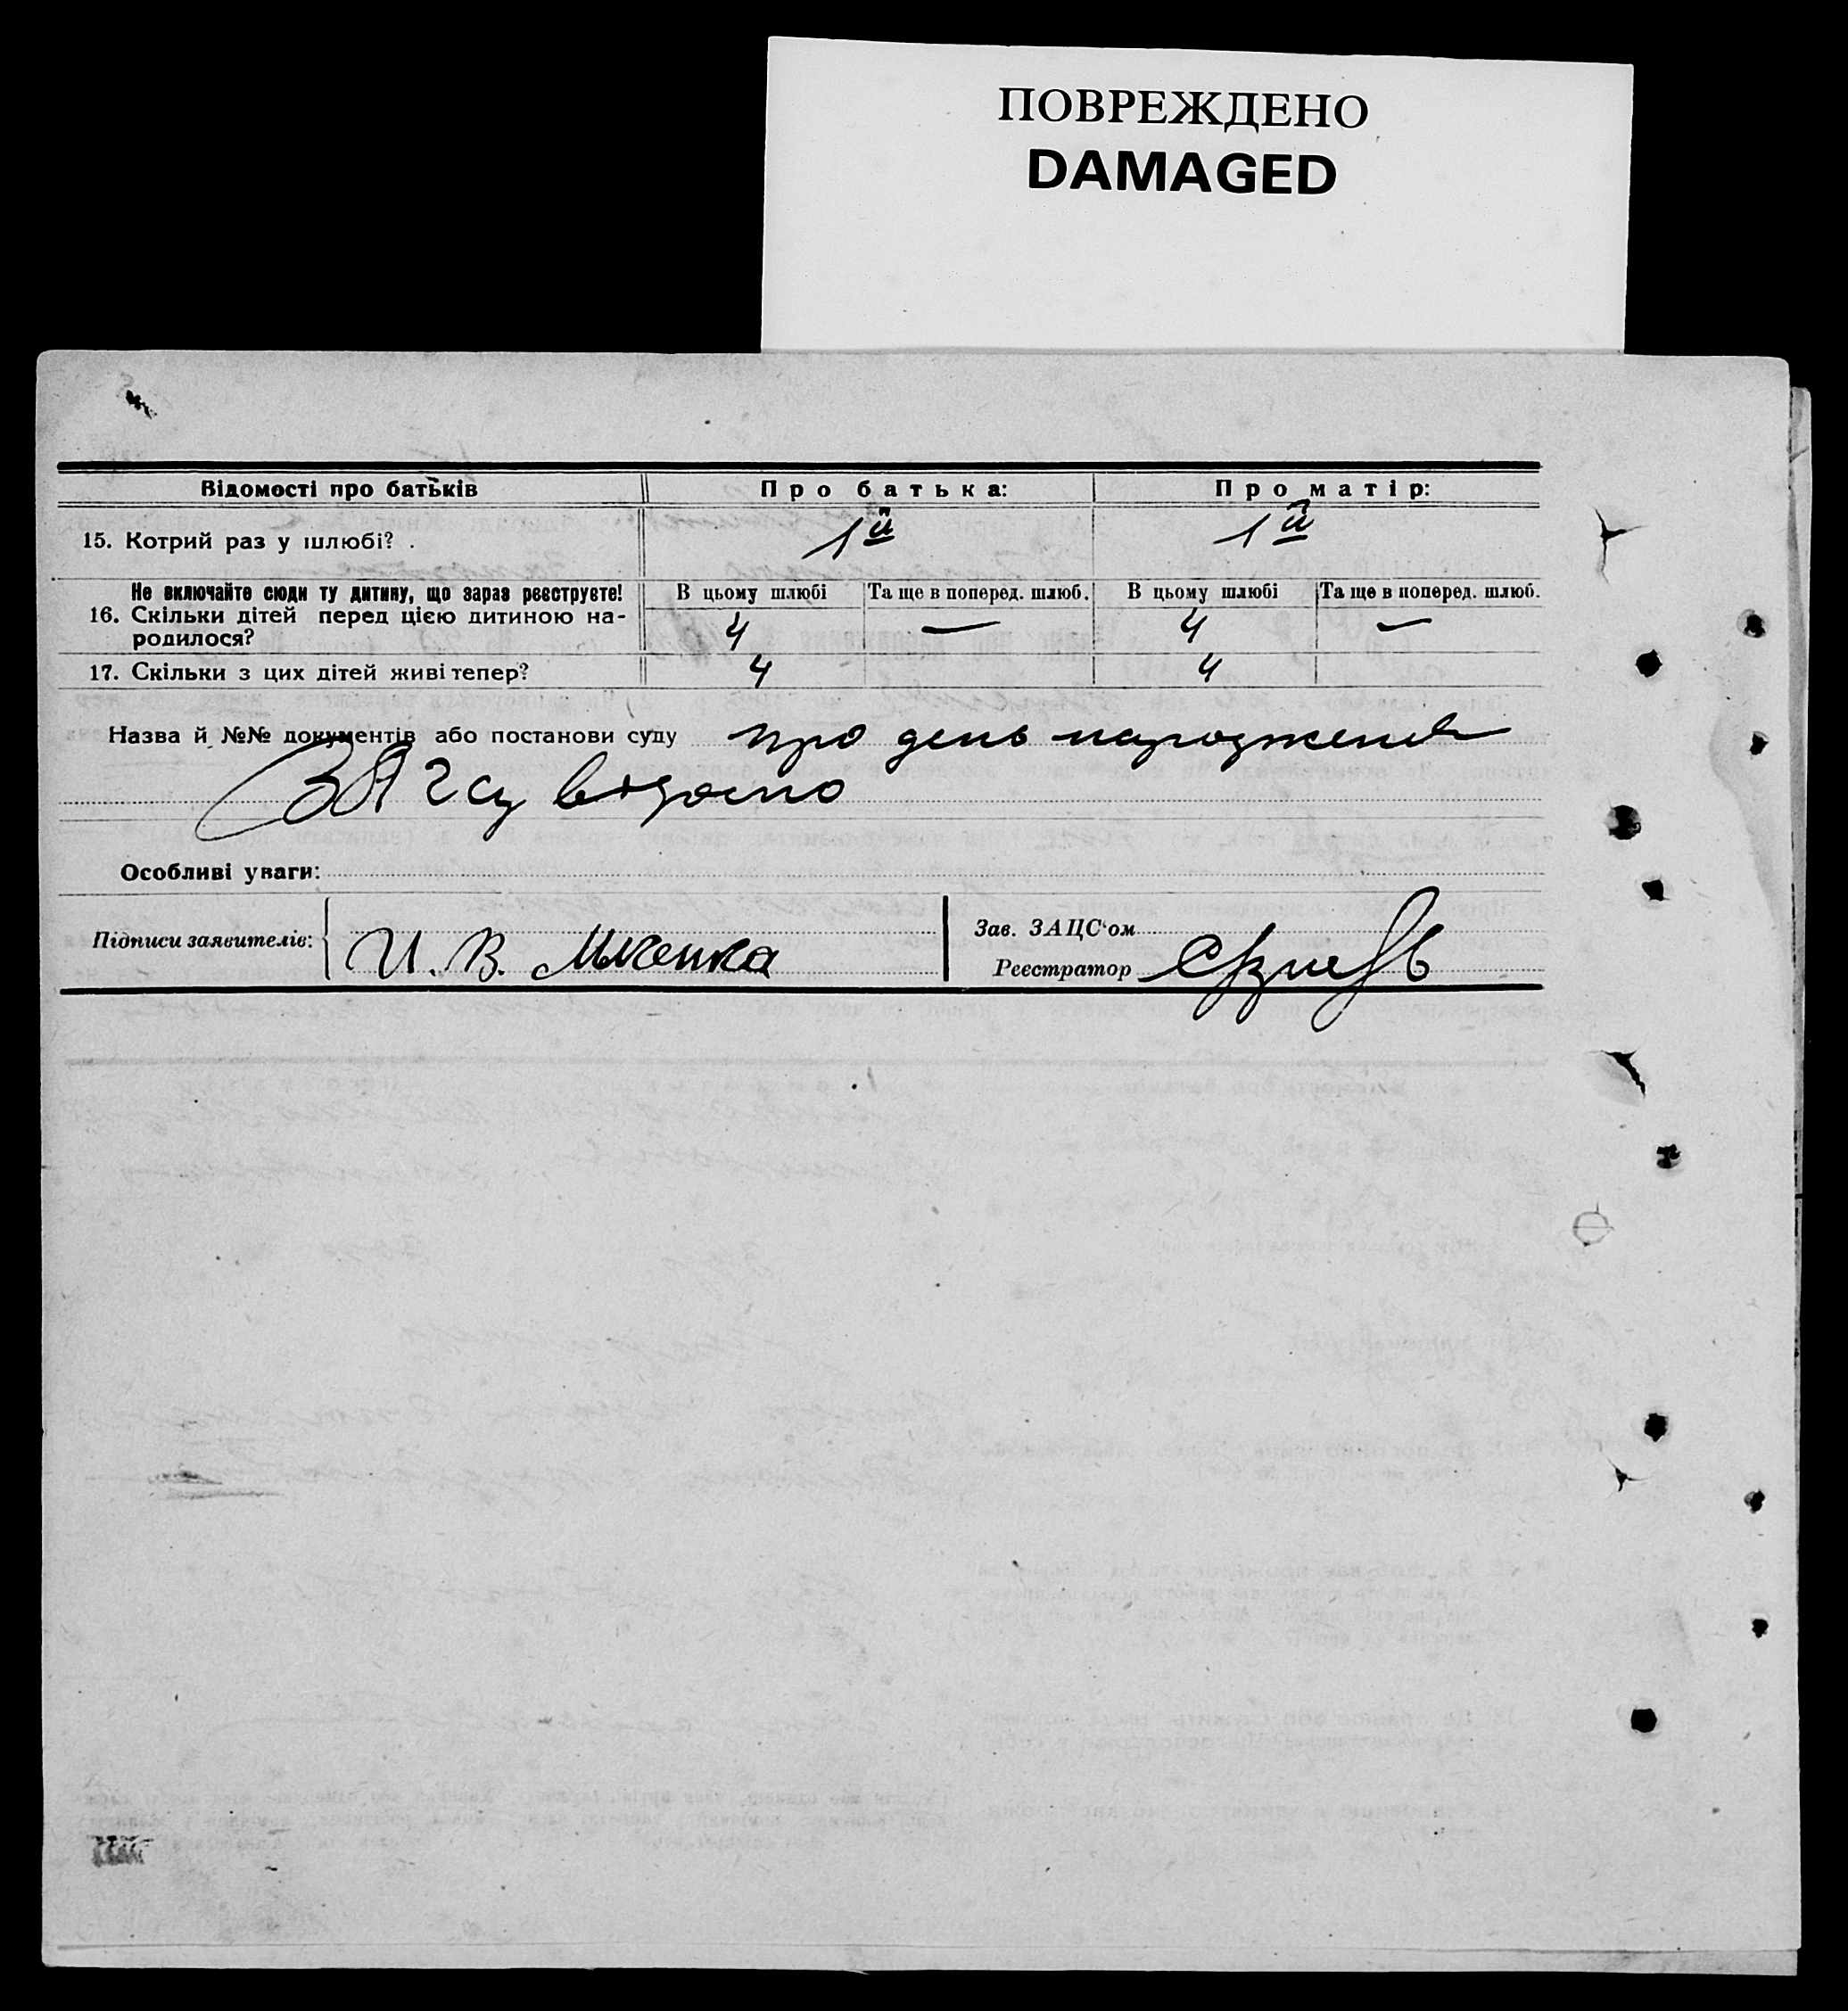 ПОВРЕЖДЕНО
DAMAGED
Відомості про батьків Про батька: Про матір:
15. Котрий раз у шлюбі? . 1й 1й
Не включайте сюди ту дитину, що зараз реєструєте! В цьому шлюбі Та ще в поперед. шлюб. В цьому шлюбі Та ще в поперед. шлюб.
16. Скільки дітей перед цією дитиною на-
родилося? 4 — 4 —
17. Скільки з цих дітей живі тепер? 4 4
Назва й №№ документів або постанови суду про день народження
ЗАГСу відомо
Особливі уваги:
Підписи заявителів: И. В. Зав. ЗАЦС'ом
Реєстратор